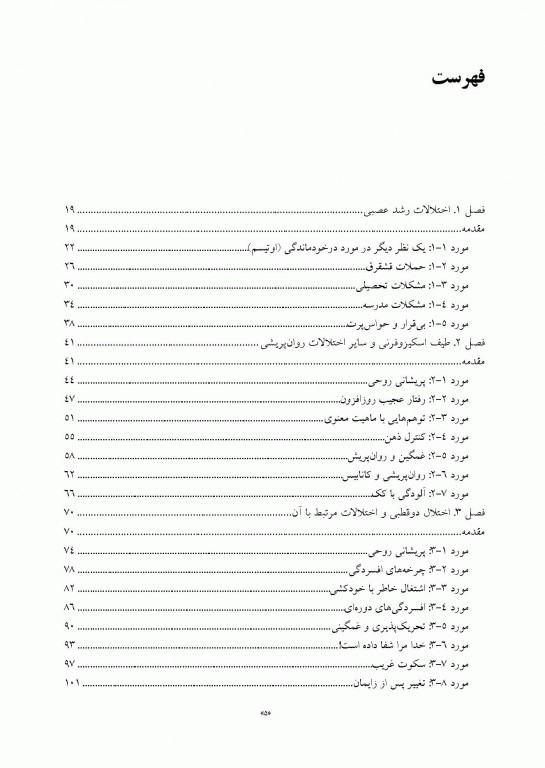 فهرست
فصل ۱. اختلالات رشد عصبی ........ ۱۹
مقدمه ........ ۱۹
مورد ۱-۱: یک نظر دیگر در مورد درخودماندگی (اوتیسم) ........ ۲۲
مورد ۲-۱: حملات قشقرق ........ ۲۶
مورد ۳-۱: مشکلات تحصیلی ........ ۳۰
مورد ۴-۱: مشکلات مدرسه ........ ۳۴
مورد ۵-۱: بی‌قرار و حواس‌پرت ........ ۳۸
فصل ۲. طیف اسکیزوفرنی و سایر اختلالات روان‌پریشی ........ ۴۱
مقدمه ........ ۴۱
مورد ۱-۲: پریشانی روحی ........ ۴۴
مورد ۲-۲: رفتار عجیب روزافزون ........ ۴۷
مورد ۳-۲: توهم‌هایی با ماهیت معنوی ........ ۵۱
مورد ۴-۲: کنترل ذهن ........ ۵۵
مورد ۵-۲: غمگین و روان‌پریش ........ ۵۸
مورد ۶-۲: روان‌پریشی و کانابیس ........ ۶۲
مورد ۷-۲: آلودگی با کک ........ ۶۶
فصل ۳. اختلال دوقطبی و اختلالات مرتبط با آن ........ ۷۰
مقدمه ........ ۷۰
مورد ۱-۳: پریشانی روحی ........ ۷۴
مورد ۲-۳: چرخه‌های افسردگی ........ ۷۸
مورد ۳-۳: اشتغال خاطر با خودکشی ........ ۸۲
مورد ۴-۳: افسردگی‌های دوره‌ای ........ ۸۶
مورد ۵-۳: تحریک‌پذیری و غمگینی ........ ۹۰
مورد ۶-۳: خدا مرا شفا داده است! ........ ۹۳
مورد ۷-۳: سکوت غریب ........ ۹۷
مورد ۸-۳: تغییر پس از زایمان ........ ۱۰۱
«۵»